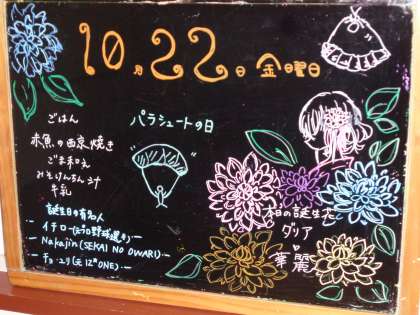 10月22日 金曜日
ごはん
赤魚の西京焼き
ごま和え
みそけんちん汁
牛乳
パラシュートの日
誕生日の有名人
イチロー(元プロ野球選手)
Nakajin(SEKAI NO OWARI)
チョ・ユリ(元IZ*ONE)
今日の誕生花
ダリア
華麗